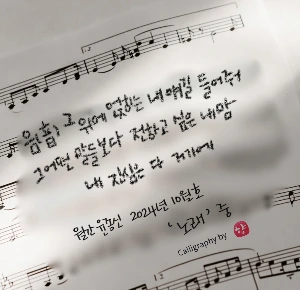 음표, 그 위에 얹히는 내 얘길 들어줘
그 어떤 말들보다 전하고 싶은 내 맘
내 진심은 다 거기에
월간 윤종신 2024년 10월호
'노래' 중
Calligraphy by